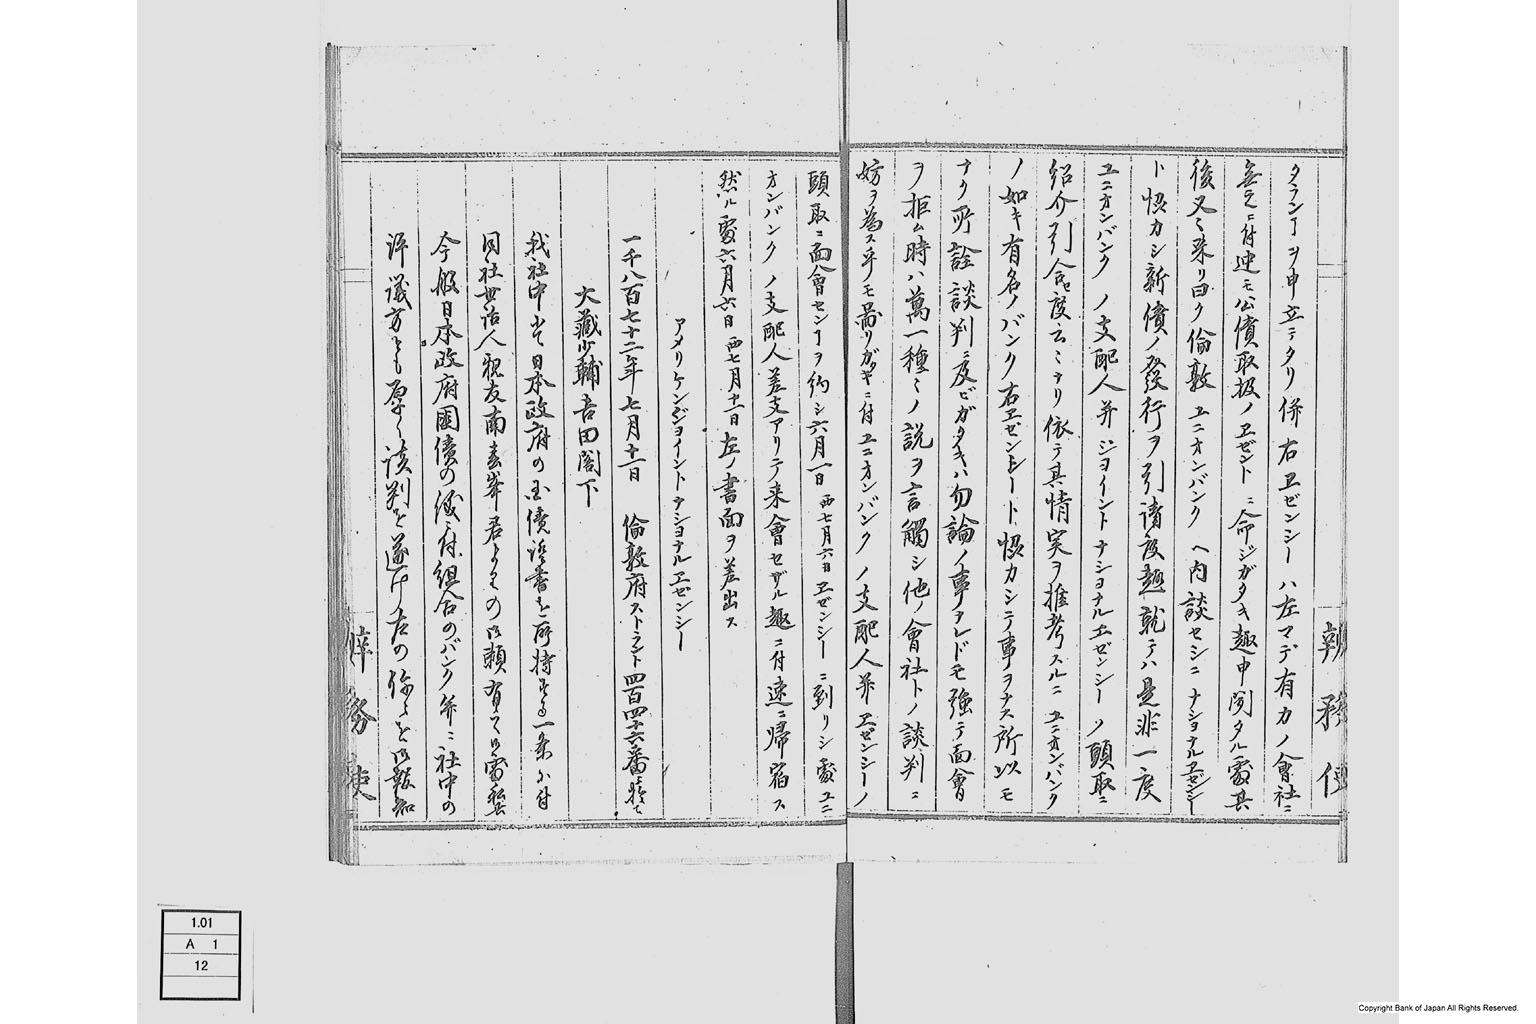 タランヿヲ申立ニタリ併右ヱゼンシーハ左マデ有力ノ會社ニ
無之ニ付迚モ公債取扱ノヱゼントニ命ジガタキ趣申聞タル處其
後又々来リ曰ク倫敦ユニオンバンクヘ内談セシニナショナルヱゼンシー
ト慥カシ新債ノ發行ヲ引請度趣就テハ是非一度
ユニオンバンクノ支配人并ジヨイントナショナルヱゼンシーノ頭取ニ
紹介引合セ度云々ナリ依テ其情実ヲ推考スルニユニオンバンク
ノ如キ有名ノバンク右ヱゼンシート慥カシテ事ヲナス所以モ
ナク所詮談判ニ及ビガタキハ勿論ノ事ナレドモ強テ面會
ヲ拒ム時ハ萬一種々ノ説ヲ言觸シ他ノ會社トノ談判ニ
妨ヲ為ス乎モ量リガタキニ付ユニオンバンクノ支配人并ヱゼンシーノ
頭取ニ面會センヿヲ約シ六月一日西七月六日ヱゼンシーニ到リシ處ユニ
オンバンクノ支配人差支アリテ来會セザル趣ニ付速ニ帰宿ス
然ル處六月六日西七月十一日左ノ書面ヲ差出ス
アメリケンジョイントナショナルヱゼンシー
一千八百七十二年七月十一日 倫敦府ストランド四百四十六番
大藏少輔吉田閣下
我社中にて日本政府の国債證書を所持する一条に付
同社世話人親友南喜峯君よりの御頼有之候處
今般日本政府國債の儀に付組合のバンク并ニ社中の
評議方とも厚く談判を遂け左の條々を御報知
辨務使